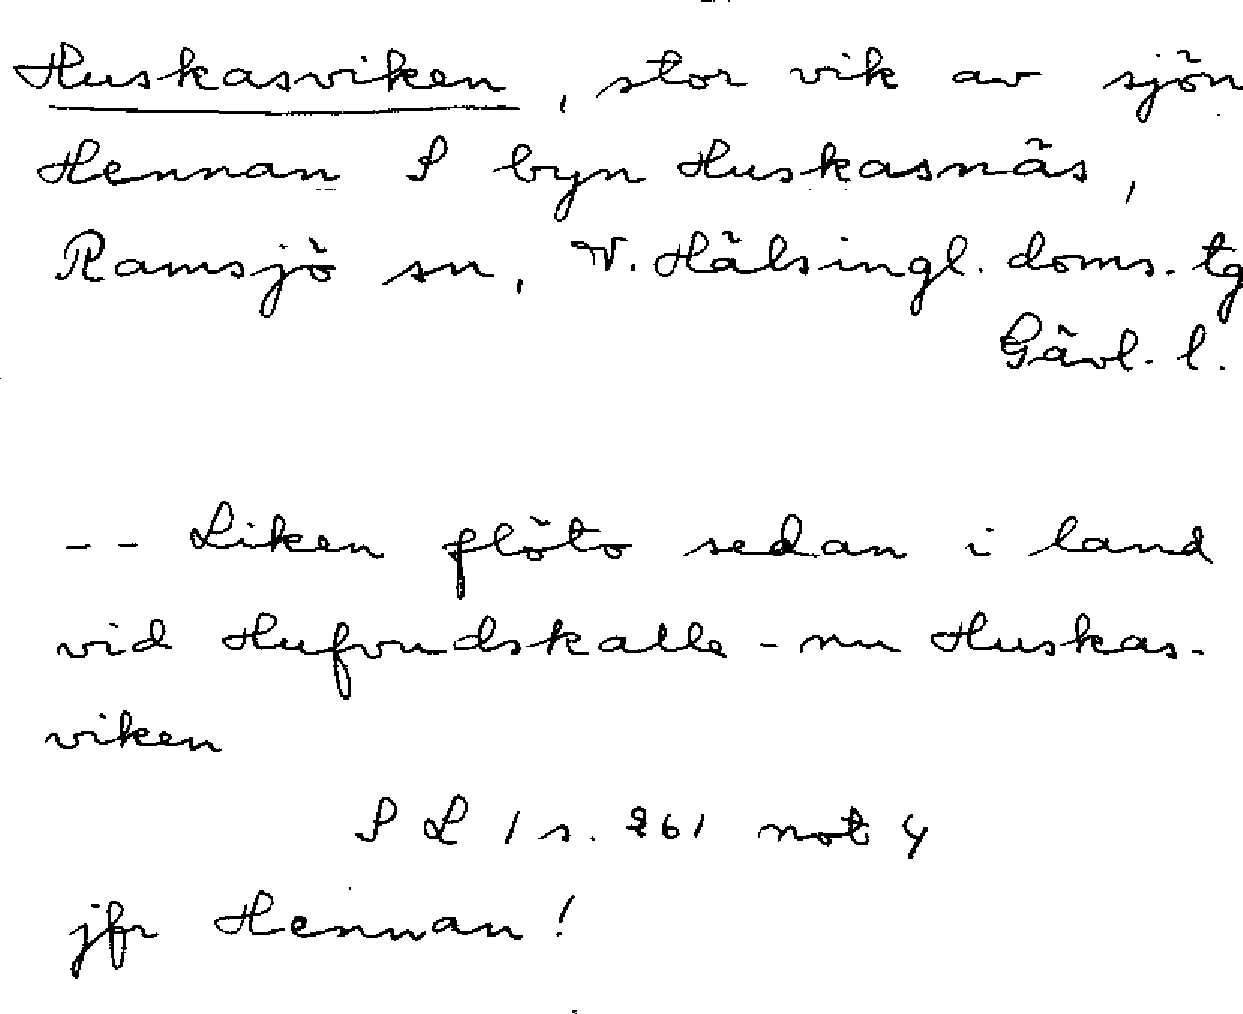 Huskasviken, stor vik av sjön
Hennan S byn Huskasnäs,
Ramsjö sn, V. Hälsingl. doms. tg
Gävl. l.
-- Liken flöto sedan i land
vid Hufvudskalle - nu Huskas-
viken
S L 1 s. 261 not 4
jfr Hennan!